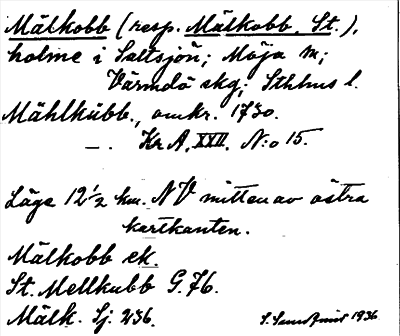 Mälkobb (resp. Mälkobb, St.),
holme i Saltsjön; Möja m;
Värmdö skg; Sthlms l.
Mählkübb., omkr. 1730.
—. Kr A. XXII. N:o 15.
Läge 12 1/2 km. NV mitten av östra
kartkanten.
Mälkobb ek.
St. Mellkubb G.76.
Mälk. Sj. 236.
1936